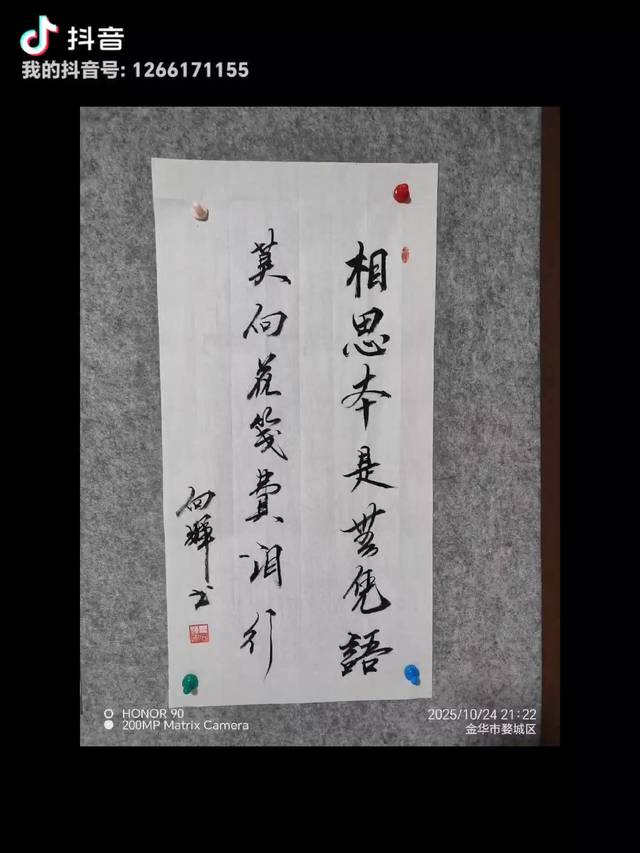 抖音
我的抖音号: 1266171155
相思本是无凭語
莫向花箋費泪行
向輝书
HONOR 90
200MP Matrix Camera
2025/10/24 21:22
金华市婺城区